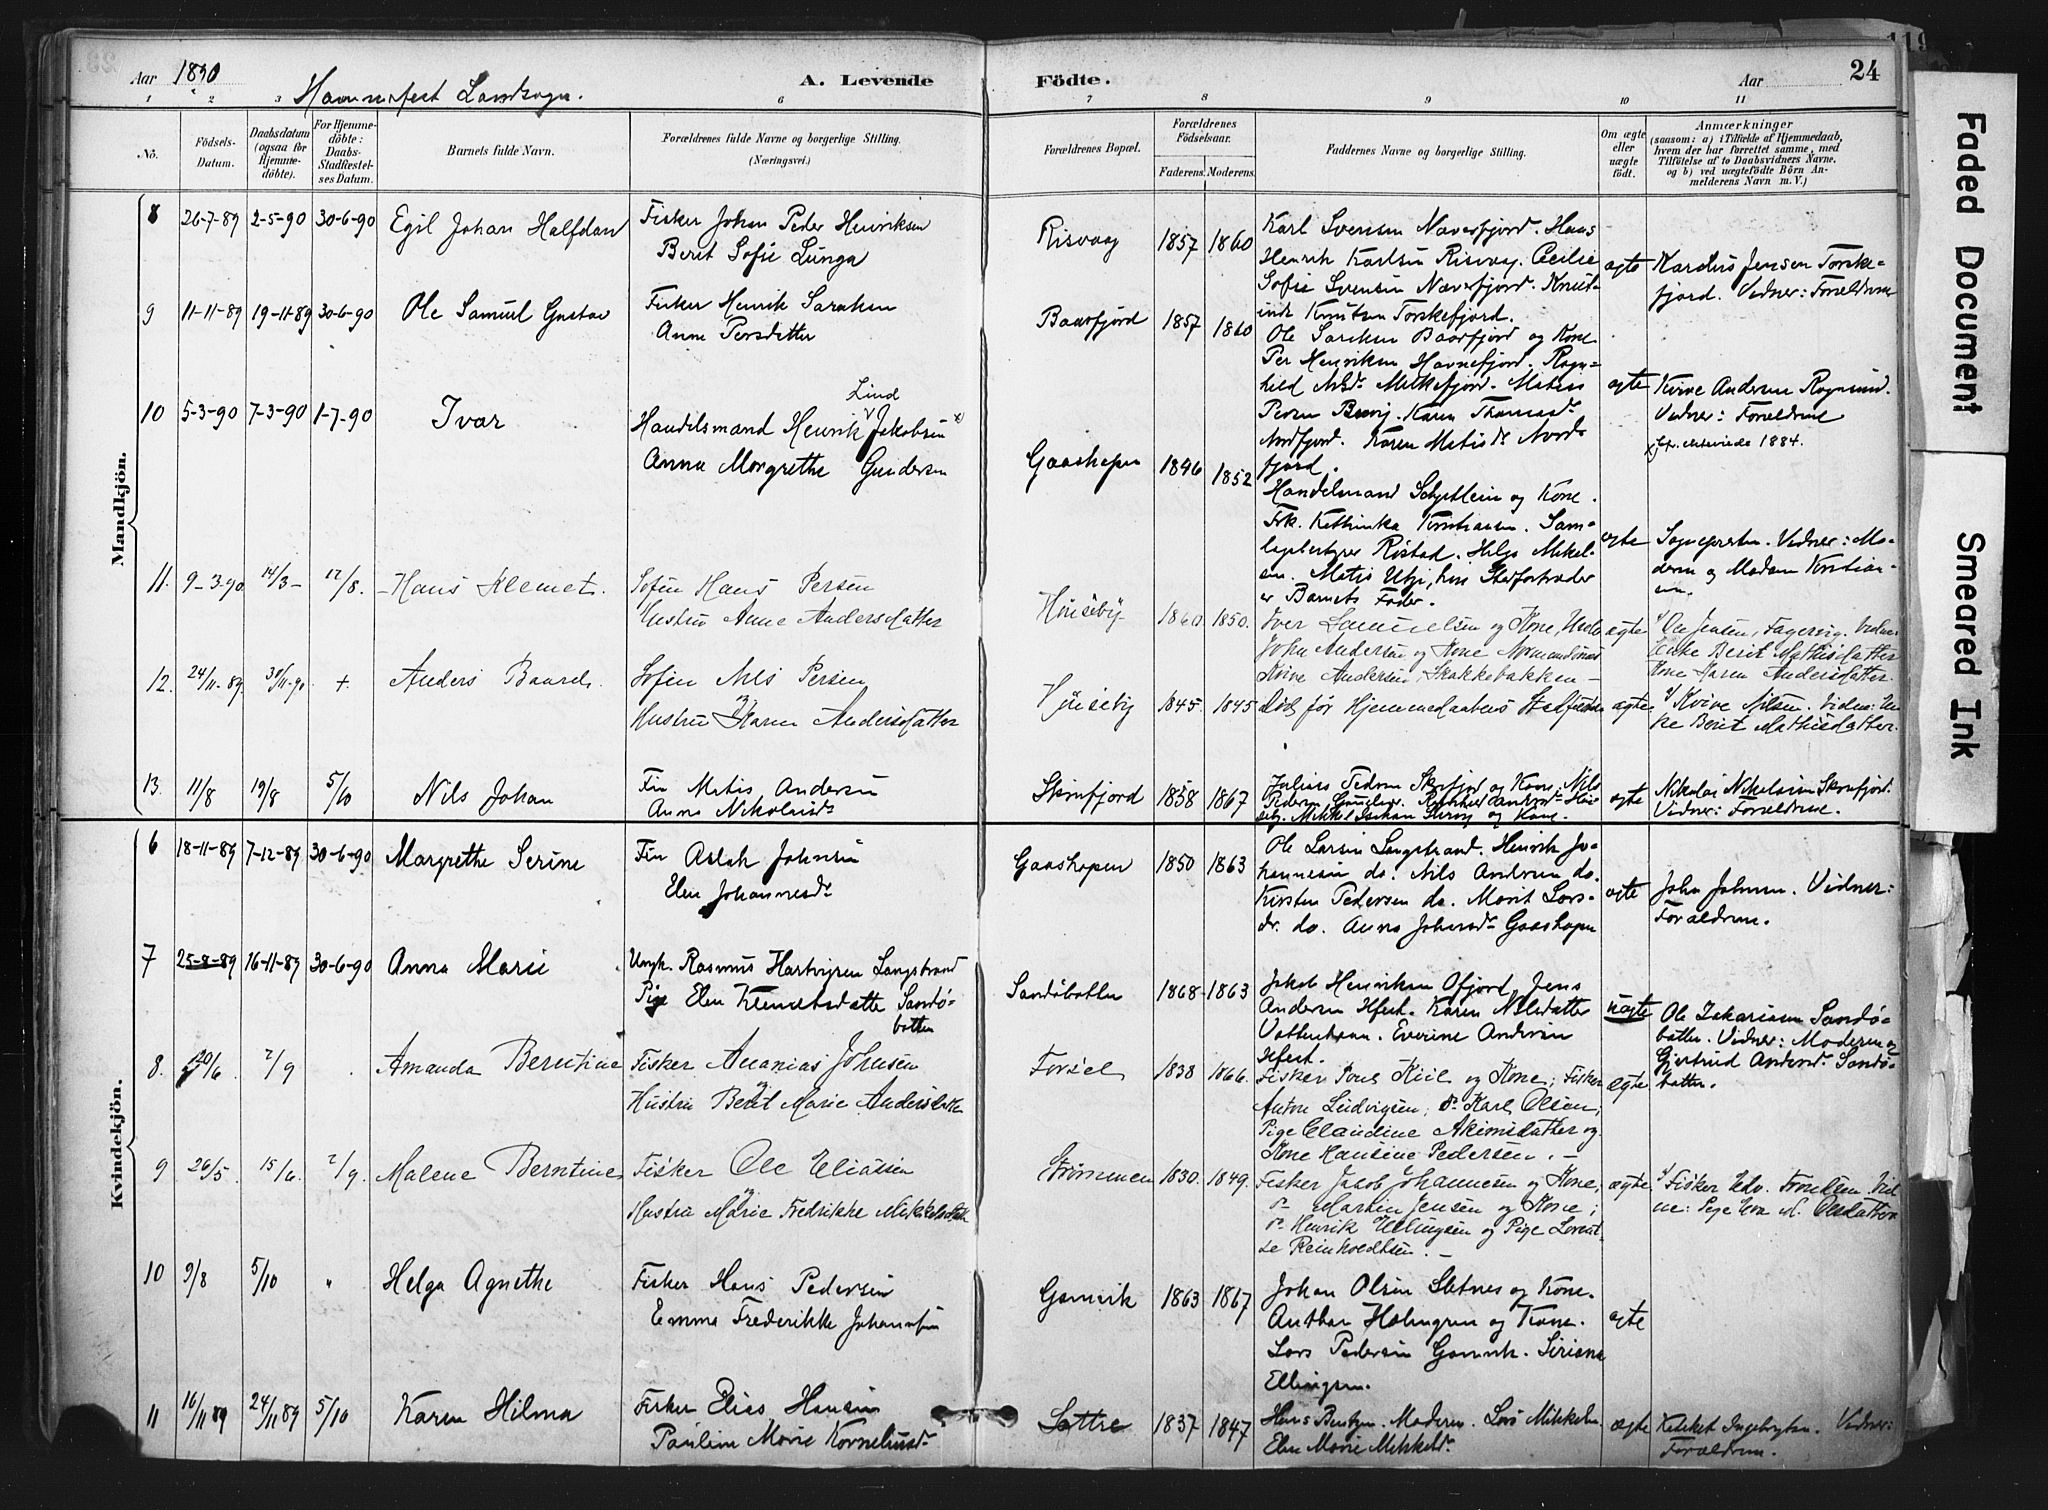 119
Aar 1890
A. Levende
Fødte.
Aar
24
Hammerfest Landsogn.
1 2 3 6 7 8 9 10 11
No.
Födsels-
Datum.
Daabsdatum
(ogsaa for
Hjemme-
döbte).
For Hjemme-
döbte:
Daabs-
Stadfæstel-
ses Datum.
Barnets fulde Navn.
Forældrenes fulde Navne og borgerlige Stilling.
(Næringsvei.)
Forældrenes Bopæl.
Forældrenes
Födselsaar.
Faderens. Moderens.
Faddernes Navne og borgerlige Stilling.
Om ægte
eller
uægte
födt.
Anmærkninger
(saasom: a) i Tilfælde af Hjemmedaab,
hvem der har forrettet samme, med
Tilföielse af to Daabsvidners Navne,
og b) ved uægtefödte Börn An-
melderens Navn m. V.)
Mandkjön.
8 26-7-89 2-5-90 30-6-90 Egil Johan Halfdan
Fisker Johan Peder Henriksen
Berit Sofie Lunga
Risvaag 1857 1860
Karl Svensen Næverfjord. Hans
Henrik Karlsen Risvag. Cecilie
Sofie Svensen Næverfjord. Knud-
Knutsen Torskefjord.
ægte
Jensen Torske-
fjord. Vidner: Forældrene
9 11-11-89 19-11-89 30-6-90 Ole Samuel Gustav
Fisker Henrik Saraksen
Anne Persdatter
Baarfjord 1857 1860
Ole Sareksen Baarfjord og Kone
Per Henriksen Havnefjord. Ragn-
hild Melkefjord. Matias
Karen Thomasdr
Nordfjord. Karen Matisdr Nord-
fjord.
ægte
Anderen Rognsund.
Vidner: Forældrene
1884.
10 5-3-90 7-3-90 1-7-90 Ivar
Lind
Handelsmand Henrik Jakobsen x)
Anna Margrethe Gundersen
Gaashopen 1846 1852
Handelsmand og Kone.
Frk. Kathinka Kristiansen. Sam-
lagsbestyrer Røstad. Helga Mikel-
sen. Matis Utsi, hvis Stedfortræder
er Barnets Fader.
ægte
Sognepresten. Vidner: Mo-
deren og Madam Kristian-
sen.
11. 9-3-90 14/3- 12/8. Hans Klemet.
Hans Persen
Hustru Anne Andersdatter
Hønseby 1860 1850.
Iver Samuelsen og Kone,
John Andersen og Kone
Andersen, Skakkebakken -
ægte
Ole Jensen, Fagervig. Vidne:
Enke Berit Mathisdatter
Kone Maren Andersdatter.
12. 24/11-89. 30/11-90 + Anders Baard.
Nils Persen
og
Hustru Karen Andersdatter
Hønseby 1845. 1845
Død før Hjemmedaabens Stadfæstelse
ægte
Nilsen. Vidne: En-
ke Berit Mathisdatter.
13. 11/8 19/8 5/10 Nils Johan
Fin Matis Andersen
Anna Nikolaisdr
Skrufjord 1858 1867
ægte
Nikolai Nikolaisen Skrufjord.
Vidner: Forældrene.
Kvindekjön.
6 18-11-89 7-12-89 30-6-90 Margrethe Serine
Fin Aslak Johnsen
Elen Johannesdr
Gaashopen 1850 1863
Ole Larsen Langstrand. Henrik Jo-
hannesen do. Nils Andersen do.
Kirsten Pedersen do. Marit Lars-
dr. do. Anna Johansdr Gaashopen
ægte
John Johnsen. Vidner:
Forældrene.
7 25-8-89 16-11-89 30-6-90 Anna Marie
Ungk. Rasmus Hartvigsen Langstrand
Pige Elen Klemetsdatter Sandø-
botten
Sandøbotten 1868 1863
Jakob Henriksen Ofjord, Jens
Andersen Hfest. Karen Nilsdatter
Everine Andersen
Hfest.
uægte
Ole Zakariasen Sandø-
botten. Vidner: Moderen og
Gjertrud Andersdr Sandø-
botten.
8. 20/6 2/9 Amanda Berntine
Fisker Ananias Johnsen
og
Hustru Berit Marie Andersdatter
Forsøl 1838 1866.
Fisker Poul Kiil og Kone; Fisker
Anton Ludvigsen; do Karl Olsen;
Pige Claudine Akimsdatter og
Kone Hansine Pedersen. -
ægte
9 26/5 15/6 2/9. Malene Berntine
Fisker Ole Eliassen
og
Hustru Marie Fredrikke Mikkelsdatter
Strømmen 1830. 1849.
Fisker Jacob Johannesen og Kone;
do Martin Jensen og Kone;
do Henrik Ellingsen og Pige Lorent-
se Reinholdtsen. -
ægte
Fisker Edv. Trondsen. Vid-
ne: Pige Eva M. Olsdatter
10 9/8 5/10 " Helga Agnethe
Fisker Hans Pedersen
Emma Frederikke Johannesen
Gamvik 1863 1867
Johan Olsen Sletnes og Kone.
Anthon Holmgren og Kone.
Lars Pedersen Gamvik. Siriane
Ellingsen.
ægte
11 16/11 89 24/11 89 5/10 Karen Hilma
Fisker Elias Hansen
Pauline Marie Korneliusdr
Sættre 1837 1847
Hans Bentzen. Moderen. Lars Mikkelsen
Elen Marie Mikkelsdr.
ægte
Kateket Ingebrigtsen. Vidner:
Forældrene.
Faded Document
Smeared Ink